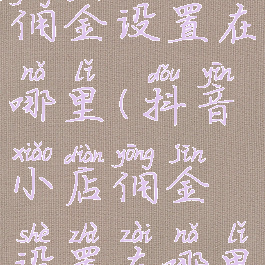 佣金设置在
nǎ lǐ dǒu yīn
哪里(抖音
xiǎo diàn yōng jīn
小店佣金
shè zhì zài nǎ lǐ
设置在哪里